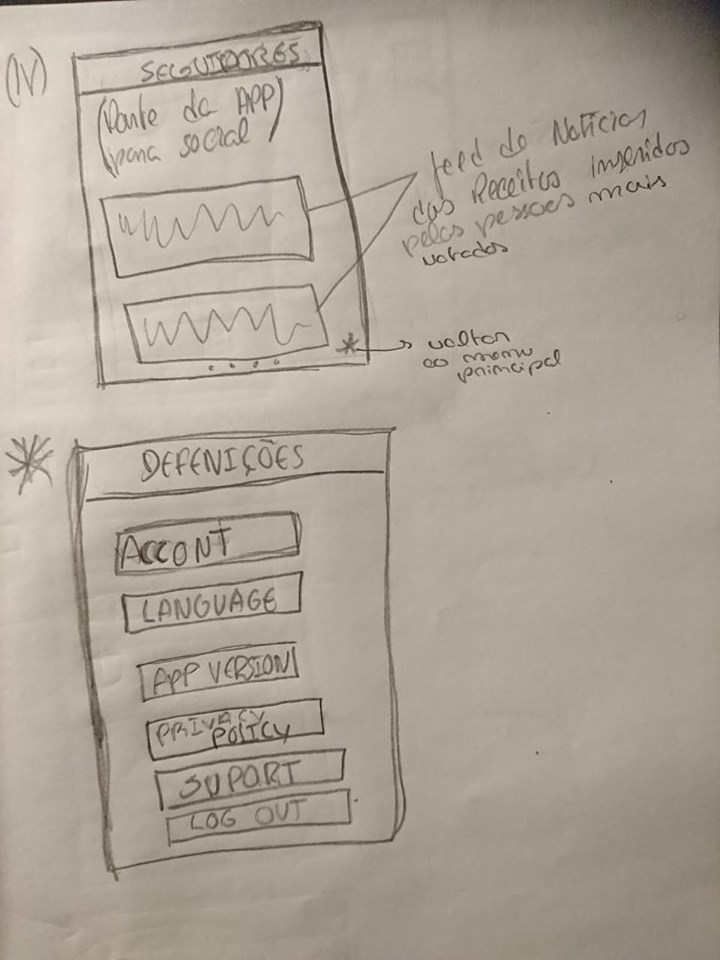 (IV)
SEGUIDORES
(Parte da APP
para social)
feed de Noticias
das Receitas inseridas
pelas pessoas mais
votadas
* → voltar
ao menu
principal
*
DEFENIÇÕES
ACCONT
LANGUAGE
APP VERSION
PRIVACY
POLICY
SUPORT
LOG OUT